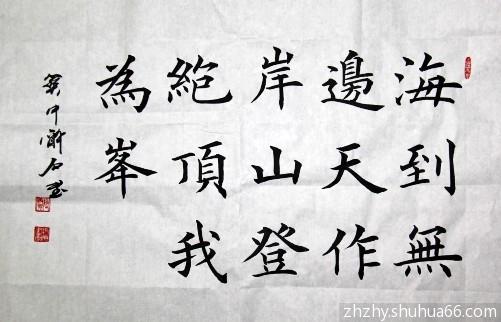 海到無
邊天作
岸山登
絶頂我
為峯
zhzhy.shuhua66.com